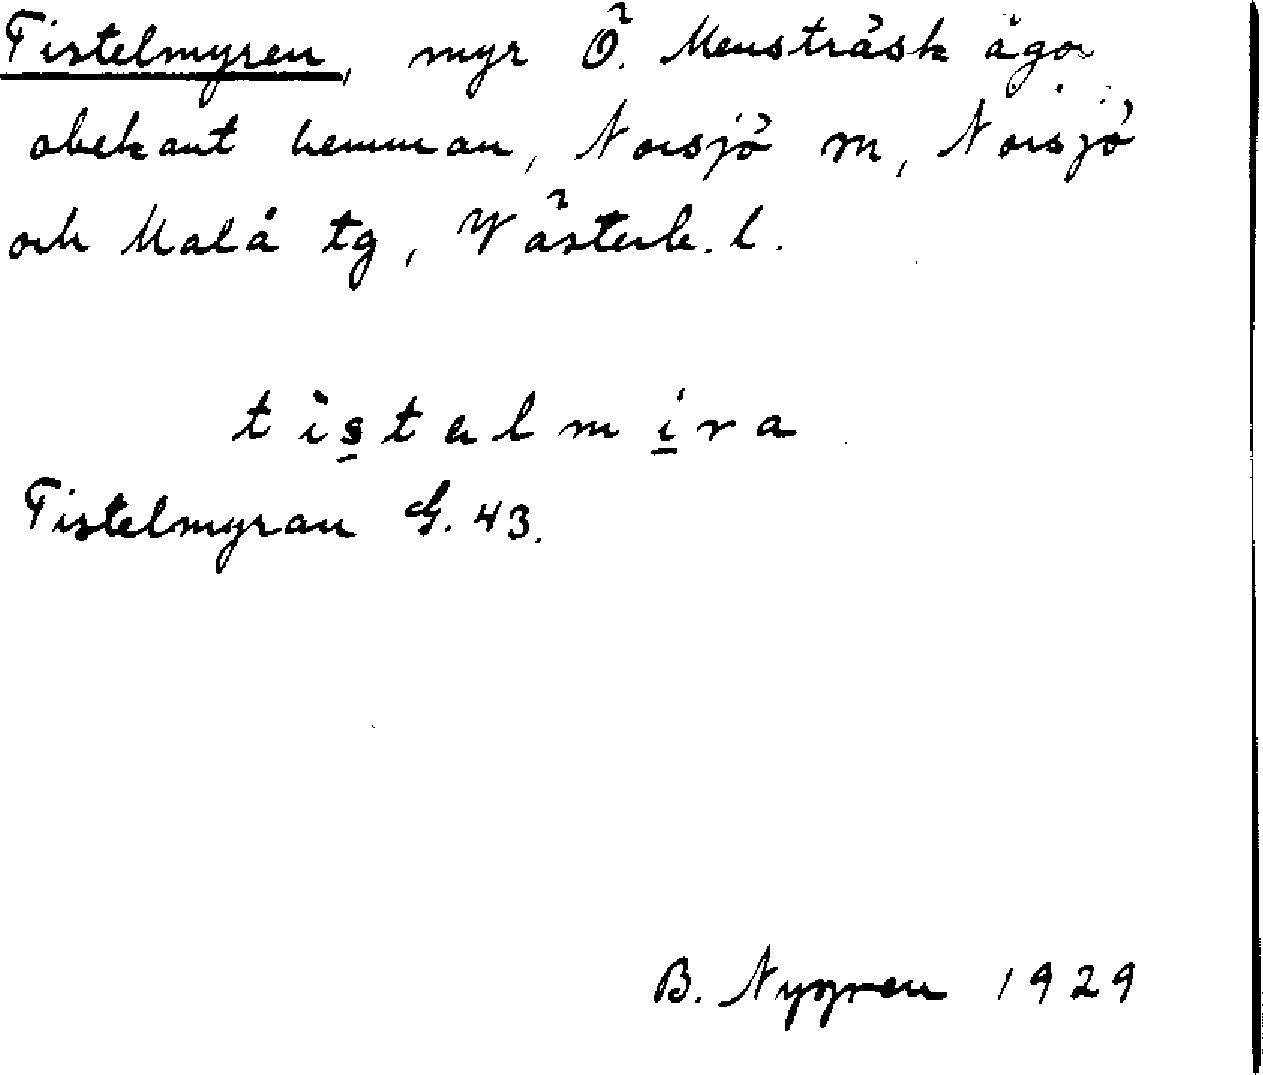 Tistelmyren, myr Ö. Mensträsk ägor
obekant hemman, Norsjö m, Norsjö
och Malå tg, Västerb. l.
tìstalmíra
Tistelmyran G. 43.
B. Nygren 1929